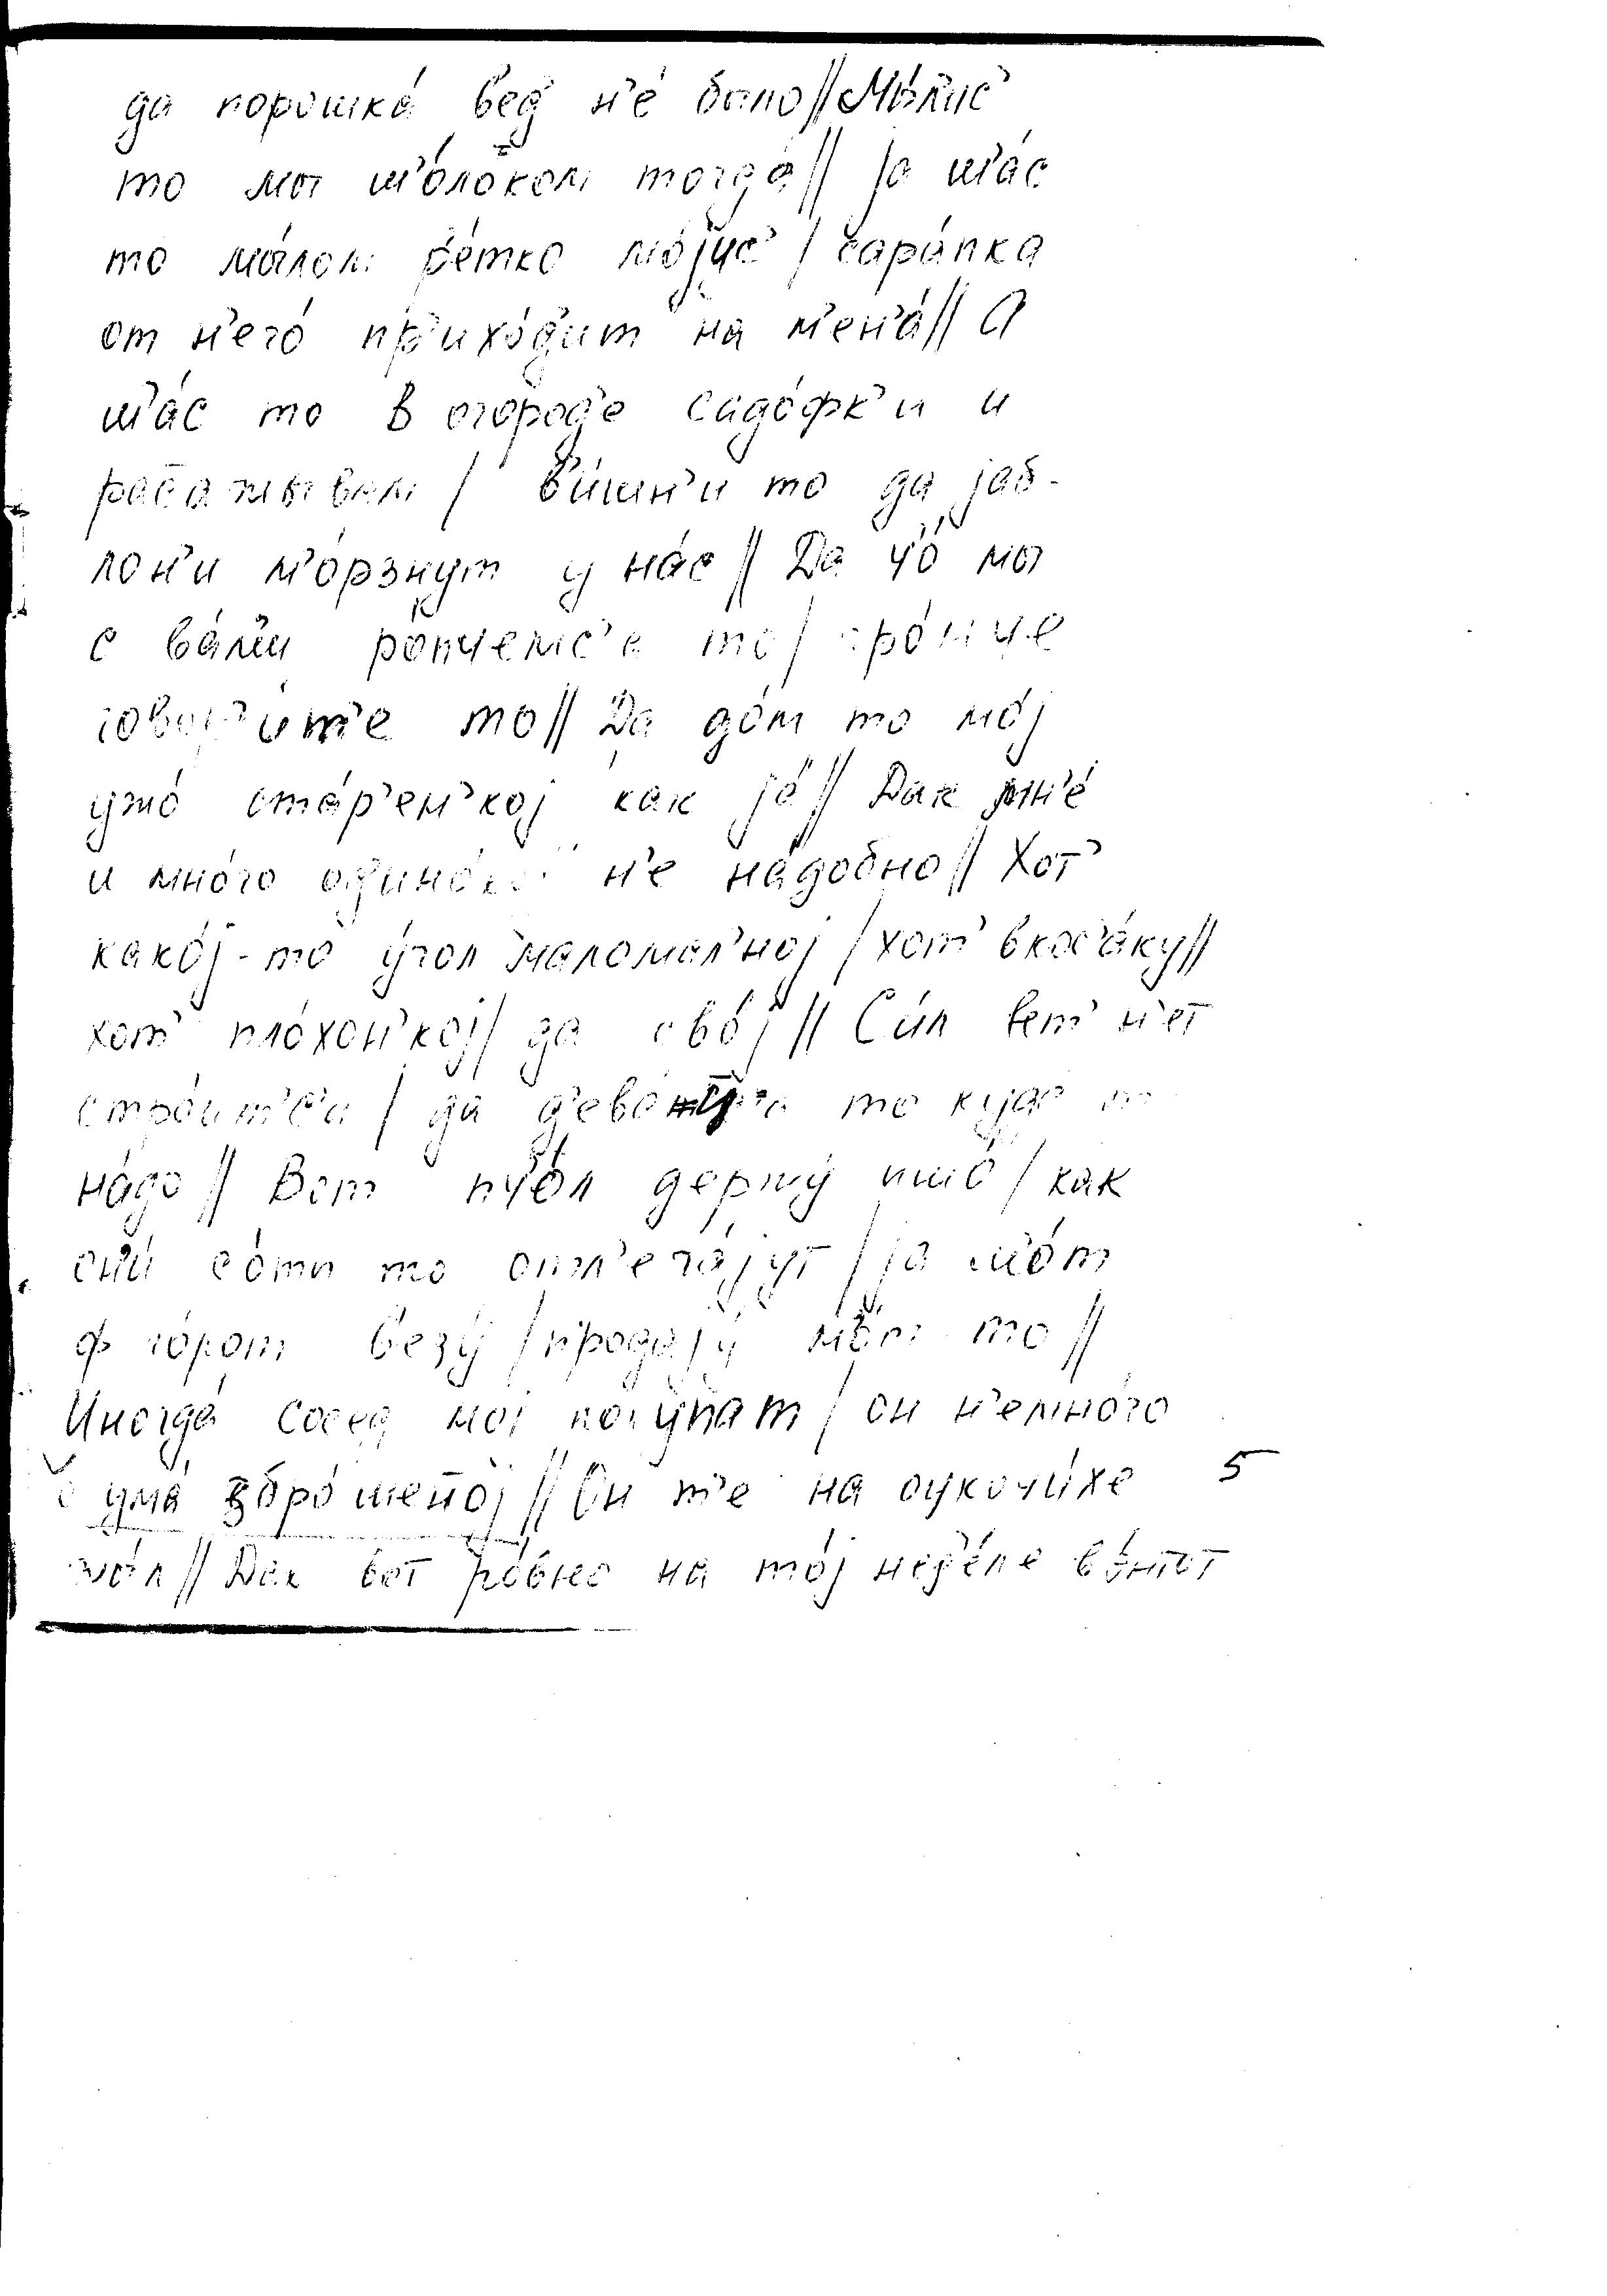 да порошка́ в'ед' н'е́ было // Мы́лис'
то мы ш'о́локом тогда́ // jа ш'а́с
то мы́лом р'е́тко мо́jус' / цара́пка
от н'его́ пр'ихо́д'ит на м'ен'а́ // А
ш'а́с то в огоро́д'е садо́фк'и и
в'и́шн'и то да jаб-
лон'и м'о́рзнут у на́с // Да ч'о́ мы
с ва́м'и ро́пчемс'а то / гро́мче
говор'и́т'е то // Да до́м то мо́j
ужо́ ста́р'ен'коj как jа́ // Дак мн'е́
и мно́го од'ино́коj н'е на́добно // Хот'
како́j-то у́гол маломал'ноj / хот' в кос'а́ку //
хот' пло́хон'коj / да сво́j // Си́л вет' н'ет
стро́ит'с'а / да д'ева́т'с'а то куда́ то
на́до // Вот пч'о́л держу́ ишо́ / как
он'и́ со́ты то отм'ега́jут / jа м'о́т
ф го́рот в'езу́ / продаjу́ м'о́т то //
Иногда́ сосед моj покупа́т / он н'емно́го
с ума́ збро́шеноj // Он т'е на
шо́л // Дак вот ро́вно на то́j нед'е́ле в э́нтот
5